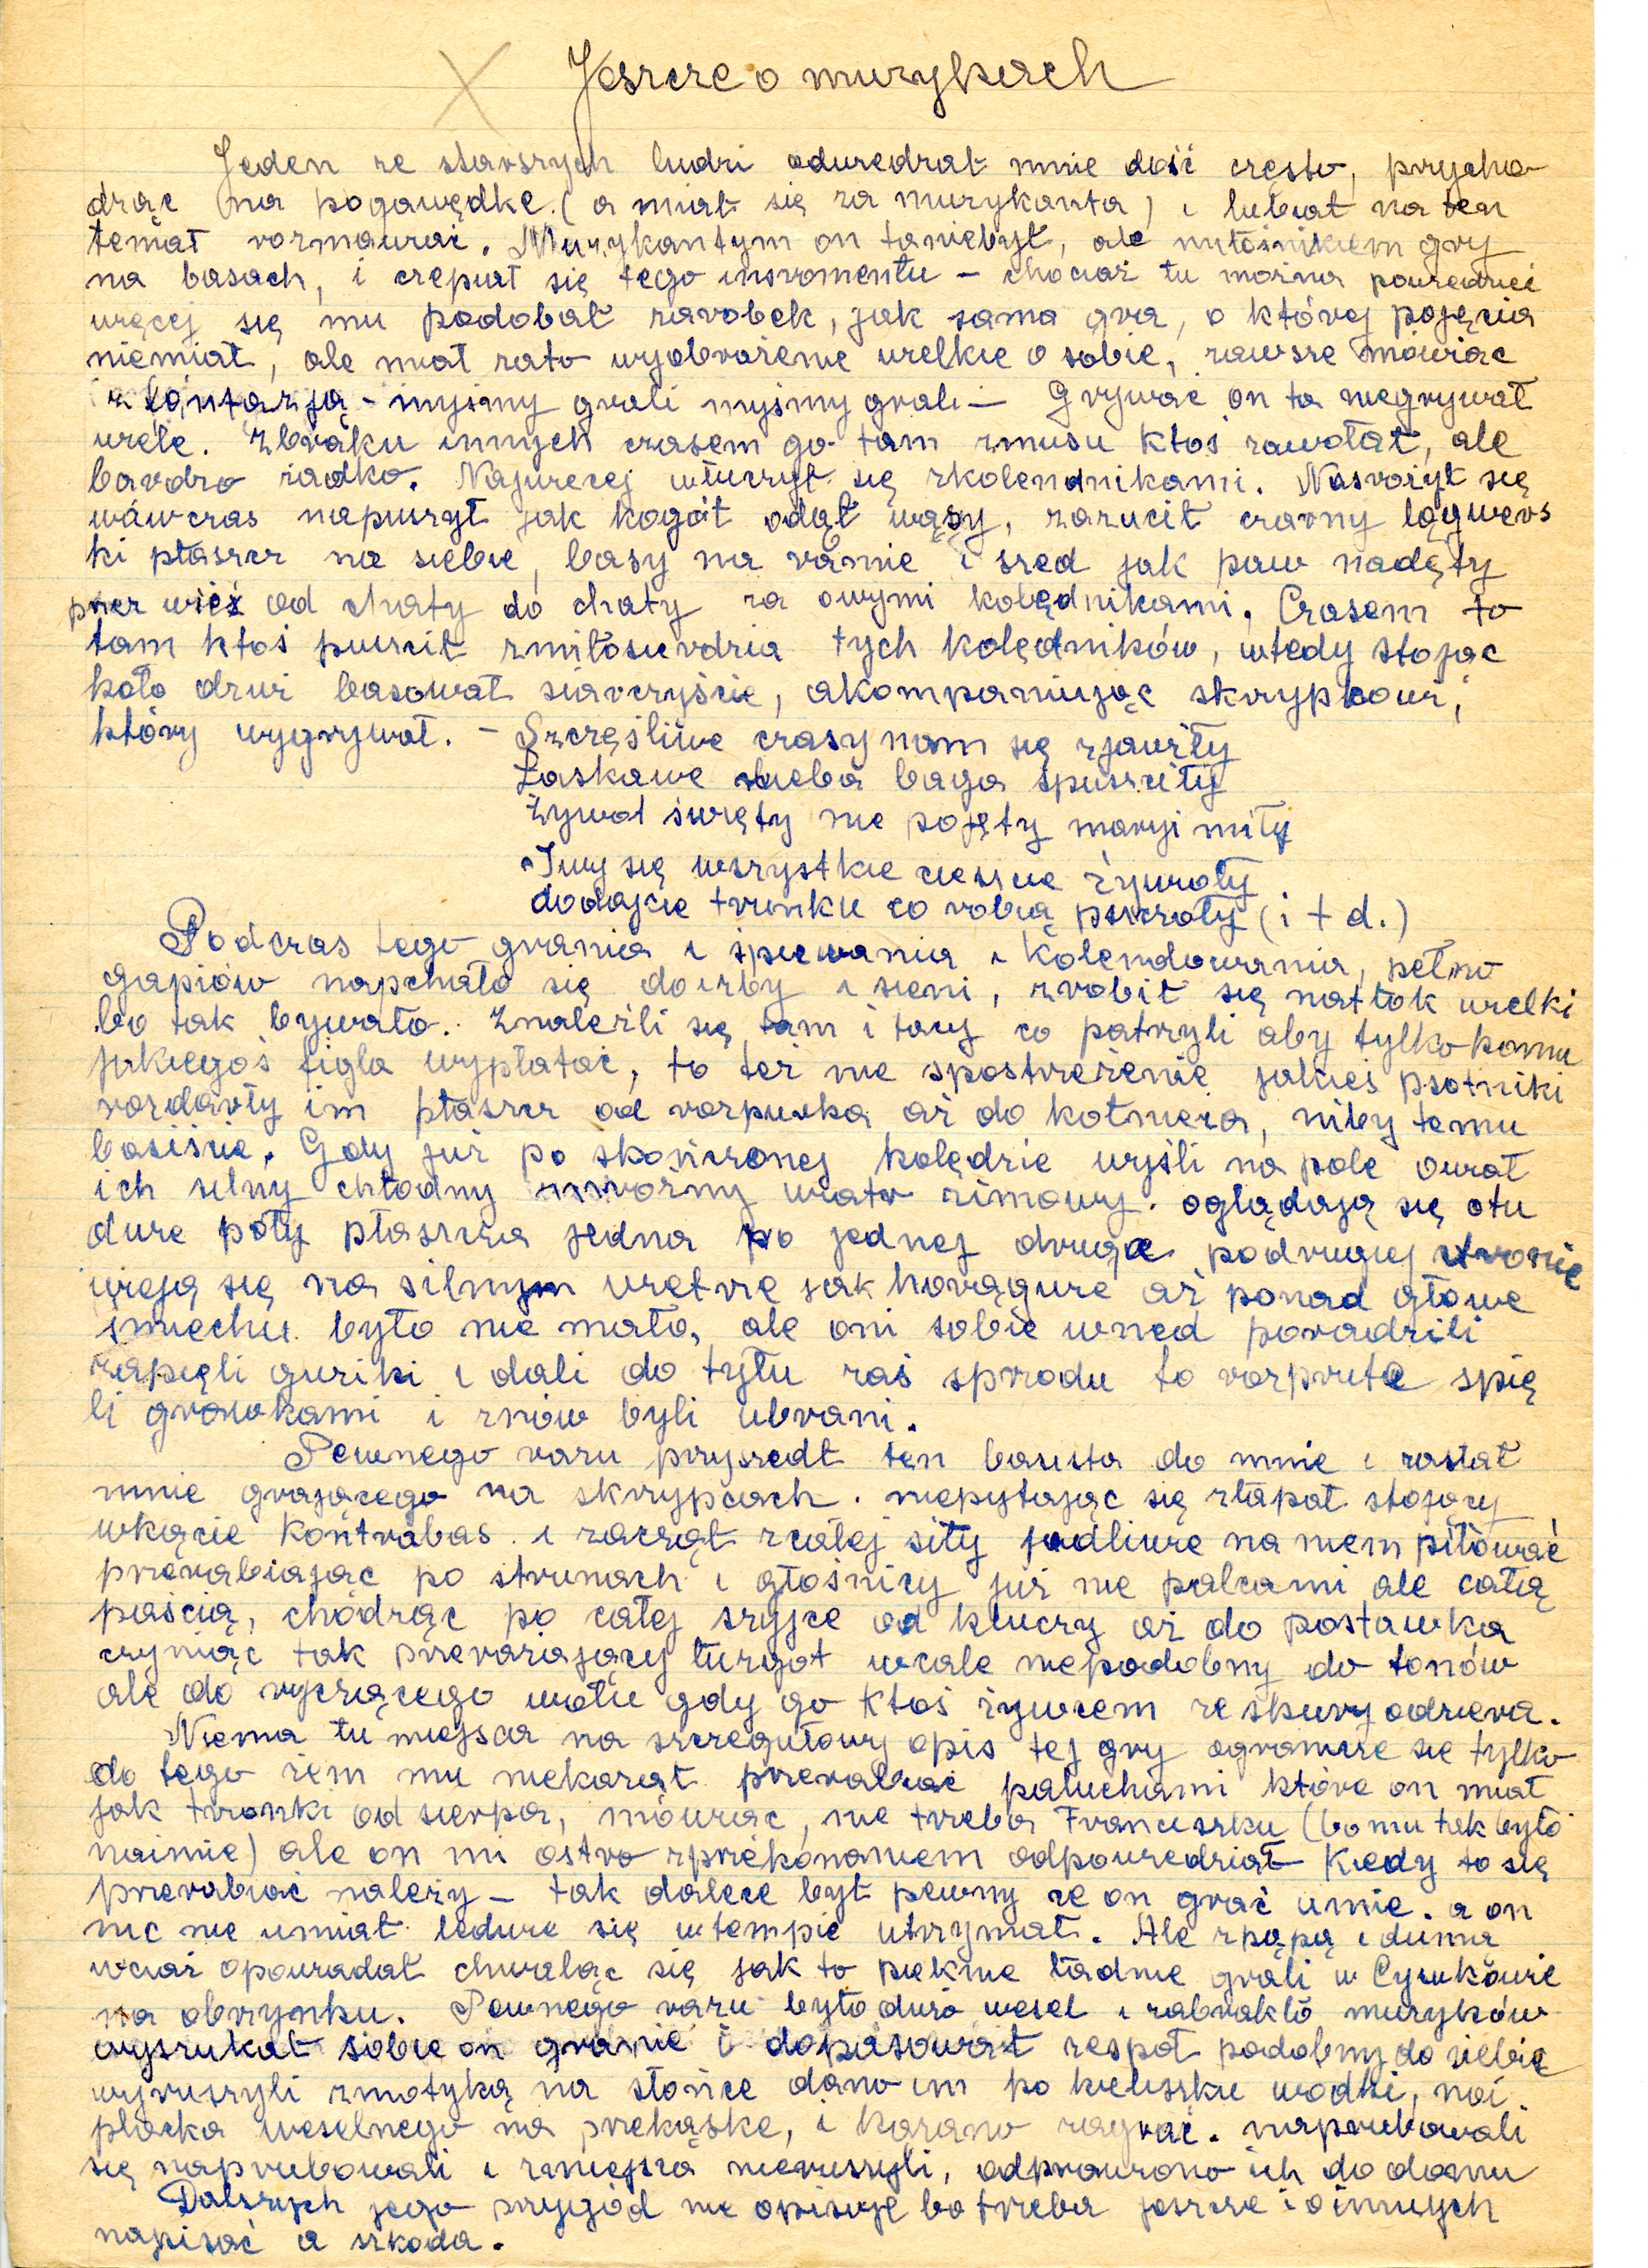 Jeszcze o muzykach
Jeden ze starszych ludzi odwiedzał mnie dość często, przycho
dząc na pogawędkę (a miał się za muzykanta) i lubiał na ten
temat rozmawiać. Muzykantym on taniebył, ale miłośnikiem gry
na basach, i czepiał się tego instromentu – chociaż tu można powiedzieć
więcej się mu podobał zarobek, jak sama gra, o której pojęcia
niemiał, ale miał zato wyobrażenie wielkie o sobie, zawsze mówiąc
z fantazją – myśmy grali myśmy grali – Grywać on ta niegrywał
wiele. Zbraku innych czasem go tam zmusu ktoś zawołał, ale
bardzo żadko. Najwiecej włuczył się zkolendnikami. Nasrożył się
wówczas napuszył jak kogót odął wąsy, zarzucił czarny łągiwers
ki płaszcz na siebie, basy na ramie i szed jak paw nadęty
przez wieś od chaty do chaty za owymi kolędnikami. Czasem to
tam ktoś puścił zmiłosierdzia tych kolędników, wtedy stojąc
koło drzwi basował siarczyście, akompaniując skrzypkowi,
który wygrywał. – Szczęśliwe czasy nam się zjawiły
Łaskawe nieba baga spuściły
Żywot święty nie pojęty maryi miły
Iwy się wszystkie ciesicie żywioły
dodajcie trunku co robią pszczoły (i t d.)
Podczas tego grania i śpiewania i kolendowania, pełno
gapiów napchało się doizby i sieni, zrobił się natłok wielki
bo tak bywało. Znaleźli się tam i tacy co patrzyli aby tylko komu
jakiegoś figla wypłatać, to też nie spostrzeżenie jakieś psotniki
rozdarły im płaszcz od rozpurka aż do kołnieża, niby temu
basiście. Gdy już po skończonej kolędzie wyśli na pole owiał
ich silny chłodny mroźny wiatr zimowy. oglądają się otu
dwie poły płaszcza jedna po jednej druga podrugiej stronie
wieją się na silnym wietrze jak horągwie aż ponad głowe
śmiechu było nie mało, ale oni sobie wned poradzili
zapięli guziki i dali do tyłu zaś sprzodu to rozprute spię
li grawkami i znów byli ubrani.
Pewnego razu przyszedł ten basista do mnie i zastał
mnie grającego na skrzypcach. niepytając się złapał stojący
wkącie kontrabas i zaczął zcałej siły jadliwie na niem piłować
przerabiając po strunach i głośnicy już nie palcami ale całą
paścią, chodząc po całej szyjce od kluczy aż do postawka
czyniąc tak przerażający turgot wcale niepodobny do tonów
ale do ryczącego wołu gdy go ktoś żywcem ze skury odziera.
Niema tu miejsca na szczegułowy opis tej gry ogranicze się tylko
do tego żem mu niekazał przerabiać paluchami które on miał
jak trzonki od sierpa, mówiąc, nie trzeba Franciszku (bo mu tak było
naimie) ale on mi ostro zprzekonaniem odpowiedział Kiedy to się
przerabiać należy – tak dalece był pewny że on grać umie. a on
nic nie umiał ledwie się wtempie utrzymał. Ale zpąpą i dumą
wciaż opowiadał chwaląc się jak to pieknie ładnie grali w Cysukówie
na obrzynku. Pewnego razu było dużo wesel i zabrakło muzyków
wyszukał sobie on granie i dopasował zespoł podobny do siebie
wyruszyli zmotyką na słońce dano im po kieliszku wodki, noi
placka weselnego na przekąske, i kazano zagrać. naprubowali
się naprubowali i zmiejsca nieruszyli, odprawiono ich do domu
Dalszych jego przygód nie opisuje bo trzeba jeszcze i oinnych
napisać a szkoda.